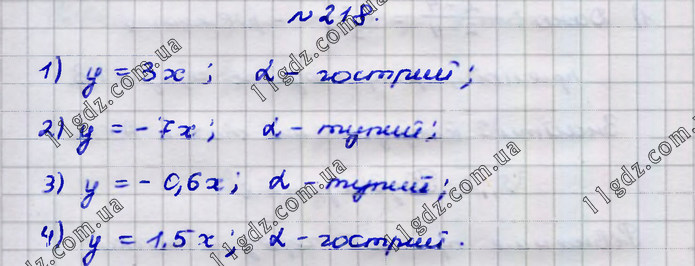 № 218.
1) y = 3x ; α - гострий ;
2) y = - 7x ; α - тупий ;
3) y = - 0,6x ; α - тупий ;
4) y = 1,5x ; α - гострий .
11gdz.com.ua
11gdz.com.ua
11gdz.com.ua
11gdz.com.ua
11gdz.com.ua
11gdz.com.ua
11gdz.com.ua